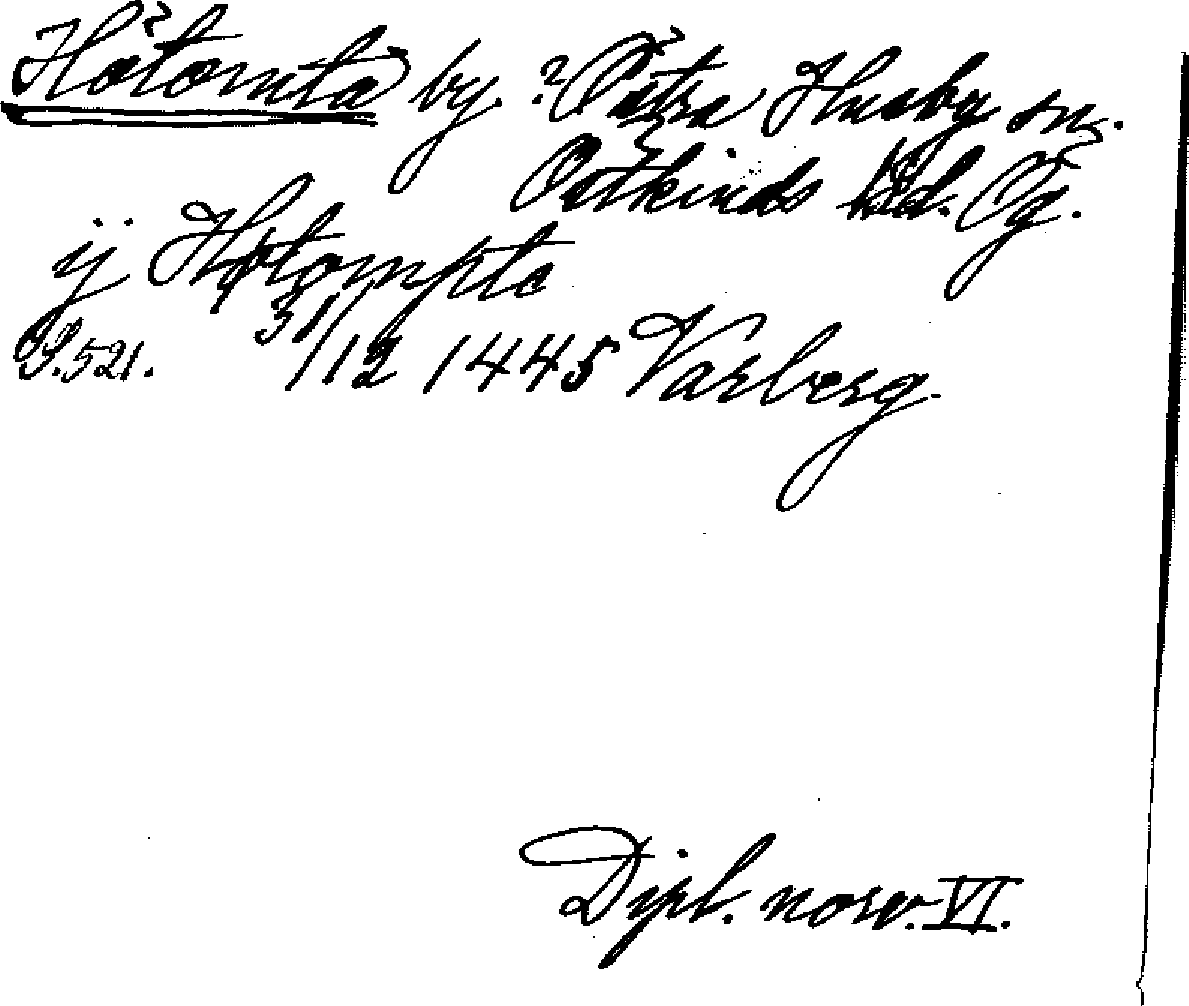 Hötomta by. ? Östra Husby sn.
Östkinds hd. Ög.
ij Høtompte
S. 521. 31/12 1445 Varberg.
Dipl. norv. VI.